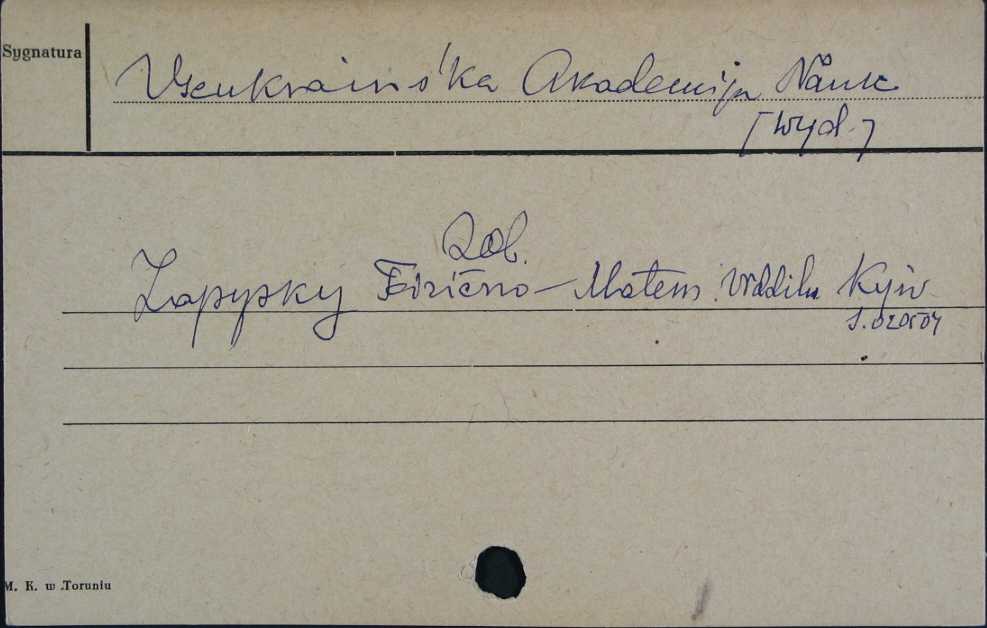 Sygnatura
Vseukraïns'ka Akademija Nauk
[wyd.]
Zob.
Zapysky Fizično-Matem. Viddilu Kyïv
M. K. w Toruniu